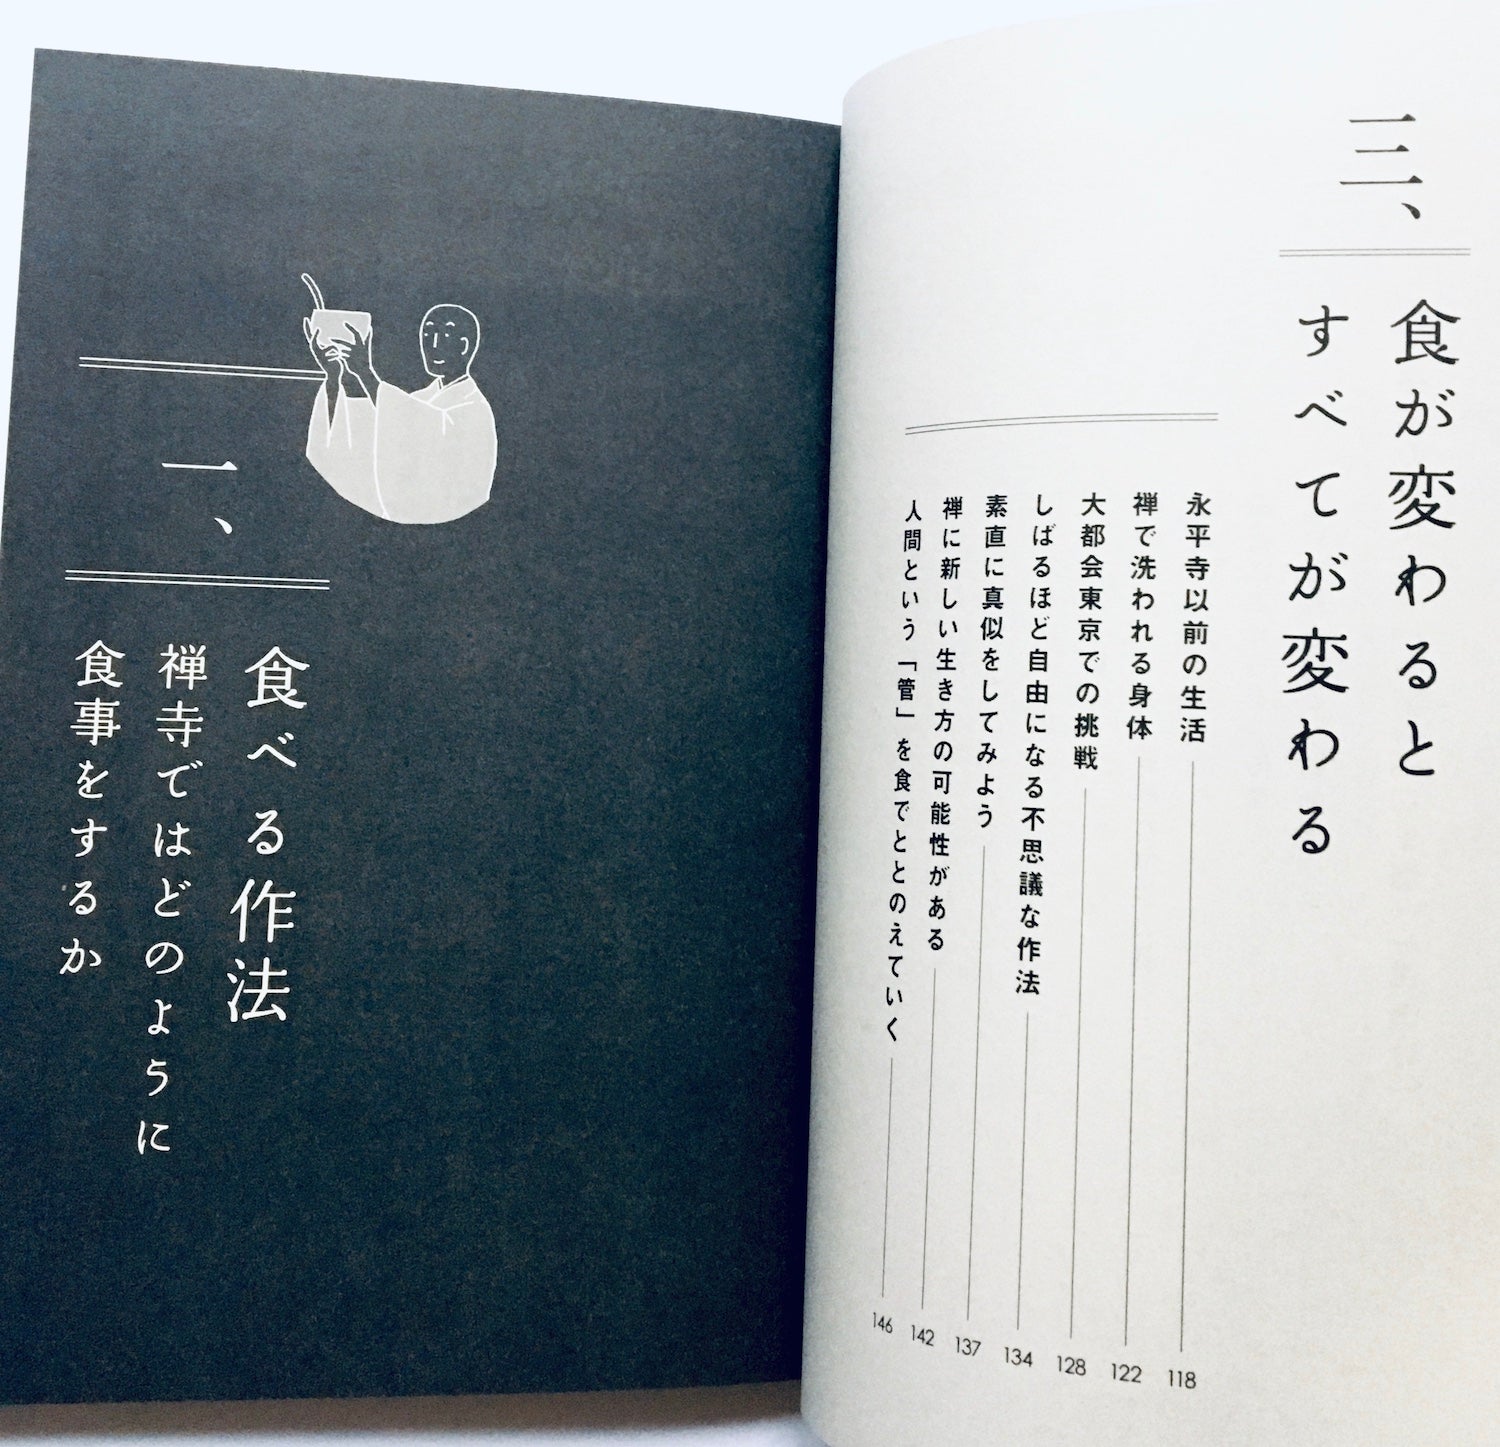 三、
食が変わると
すべてが変わる
永平寺以前の生活 118
禅で洗われる身体 122
大都会東京での挑戦 128
しばるほど自由になる不思議な作法 134
素直に真似をしてみよう 137
禅に新しい生き方の可能性がある 142
人間という「管」を食でととのえていく 146
一、
食べる作法
禅寺ではどのように
食事をするか